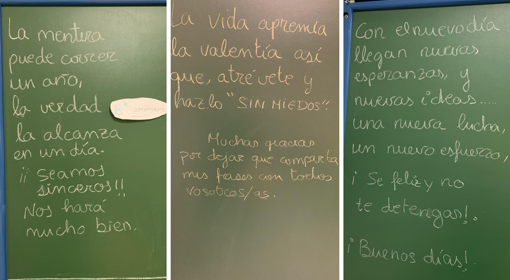 La mentira
puede correr
un año,
la verdad
la alcanza
en un día.
¡¡ Seamos
sinceros!!
Nos hará
mucho bien.
La vida apremia
la valentía así
que, atrévete y
hazlo "SIN MIEDOS".
Muchas gracias
por dejar que comparta
mis frases con todos
vosotros/as.
Con el nuevo día
llegan nuevas
esperanzas, y
nuevas ideas....
una nueva lucha,
un nuevo esfuerzo,
¡ Se feliz y no
te detengas!.
¡Buenos días!.